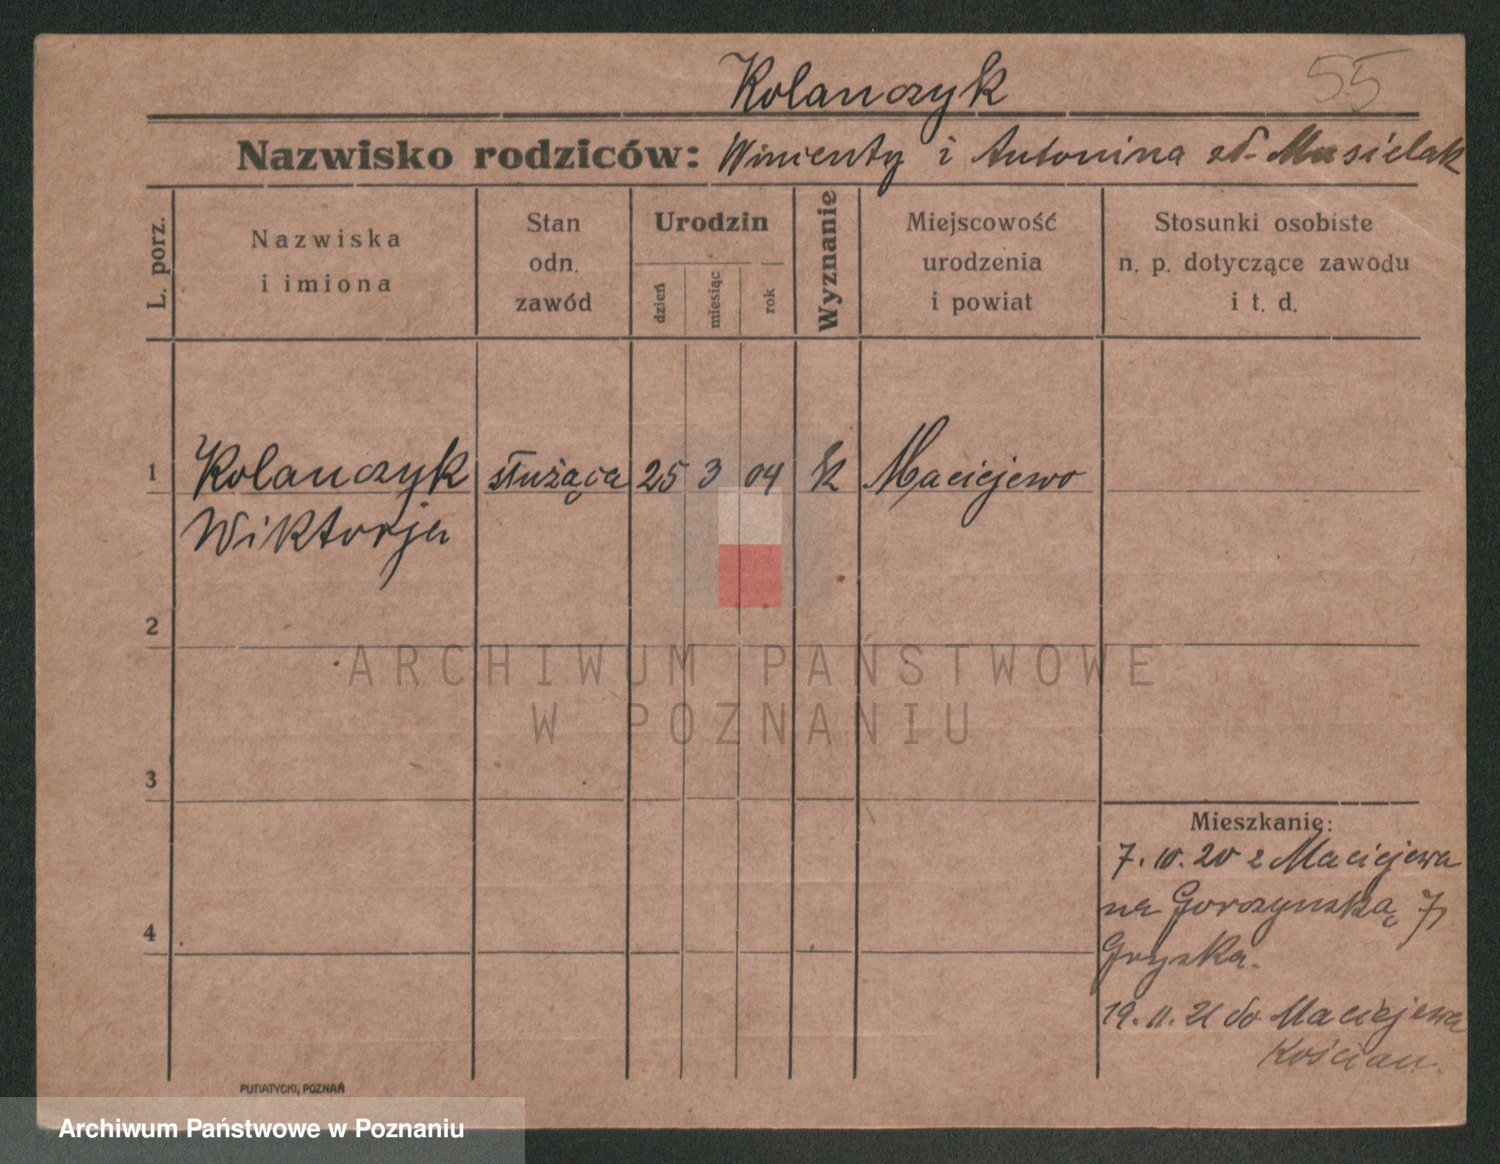 55
Kolanczyk
Nazwisko rodziców: Wincenty i Antonina zd. Musielak
L. porz.
Nazwiska
i imiona
Stan
odn.
zawód
Urodzin
dzień
miesiąc
rok
Wyznanie
Miejscowość
urodzenia
i powiat
Stosunki osobiste
n. p. dotyczące zawodu
i t. d.
1 Kolanczyk służąca 25 3 04 k Maciejewo
Wiktorja
2
ARCHIWUM PAŃSTWOWE
W POZNANIU
3
Mieszkanie:
7. 10. 20 z Maciejewa
na Gorczyńską 7
4
Gryska.
19. 11. 21 do Maciejewa
Kościan.
PUTIATYCKI, POZNAŃ
Archiwum Państwowe w Poznaniu